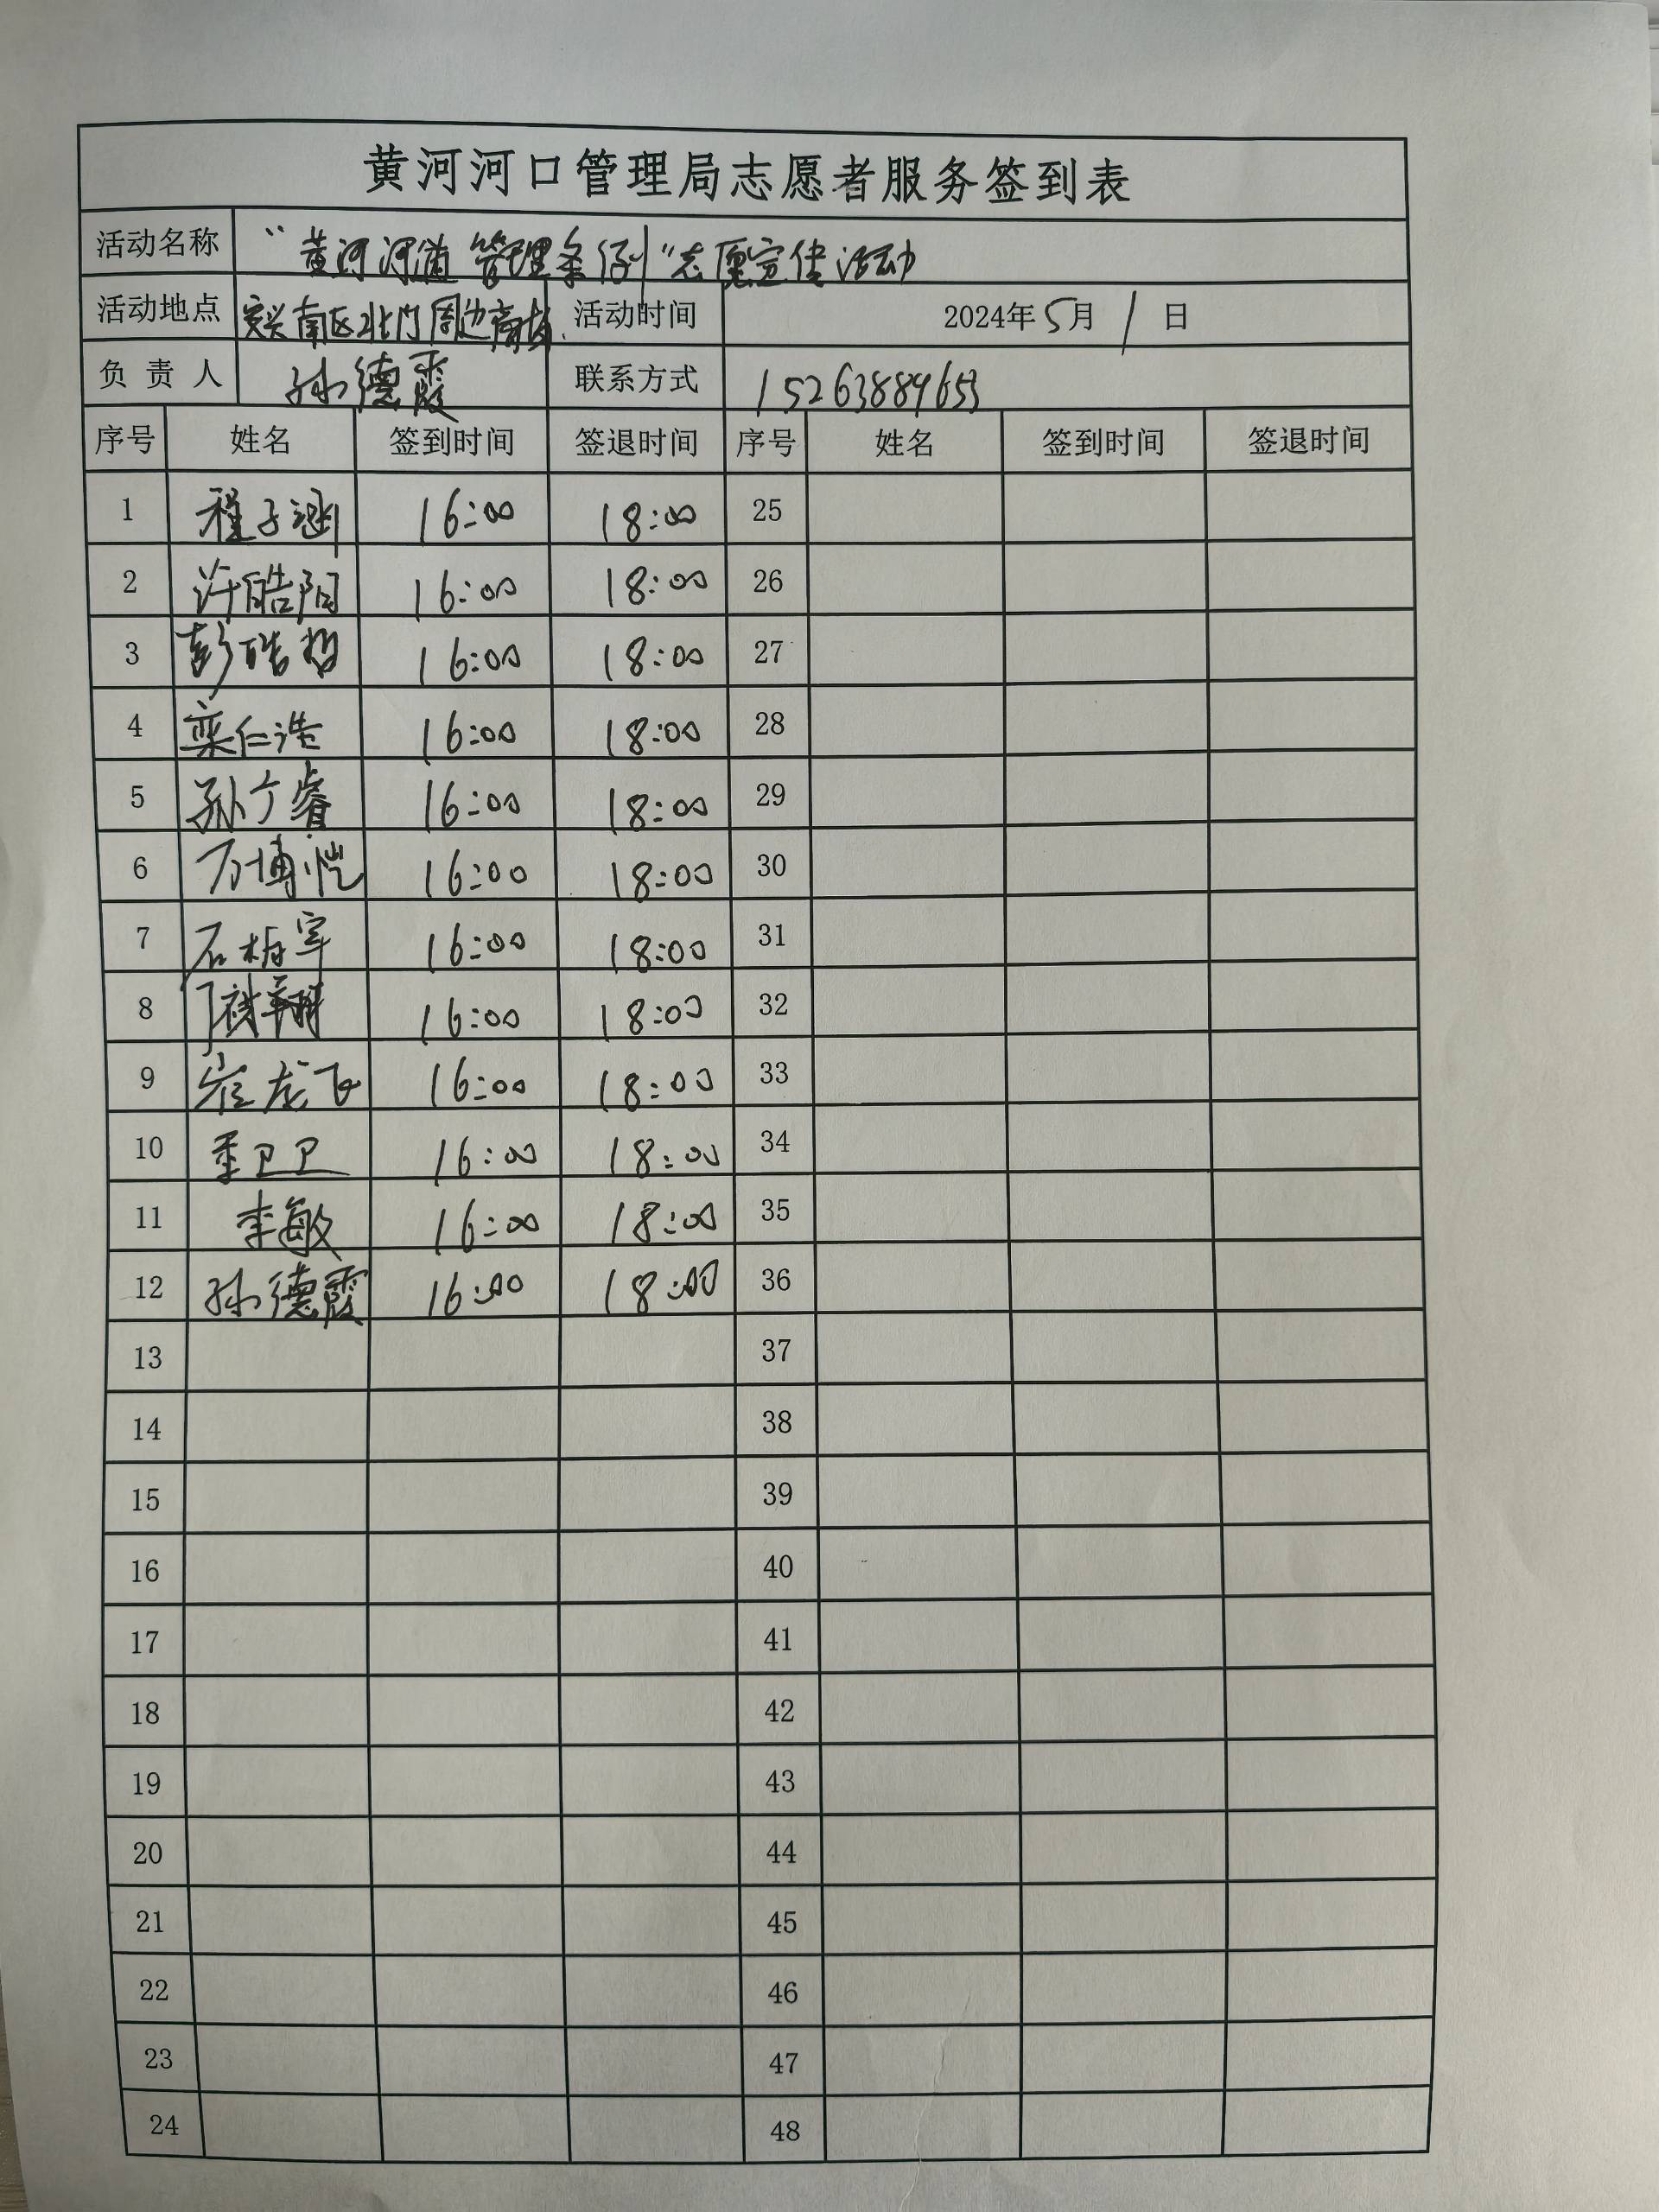 黄河河口管理局志愿者服务签到表
活动名称 “黄河河道管理条例”志愿宣传活动
活动地点 安兴南区北门周边商场 活动时间 2024年5月1日
负责人 孙德霞 联系方式 15263889653
序号 姓名 签到时间 签退时间 序号 姓名 签到时间 签退时间
1 程子涵 16:00 18:00 25
2 许皓阳 16:00 18:00 26
3 彭皓 16:00 18:00 27
4 栾仁浩 16:00 18:00 28
5 孙广睿 16:00 18:00 29
6 万博恺 16:00 18:00 30
7 石梅宰 16:00 18:00 31
8 16:00 18:00 32
9 崔龙飞 16:00 18:00 33
10 季卫卫 16:00 18:00 34
11 李敏 16:00 18:00 35
12 孙德霞 16:00 18:00 36
13 37
14 38
15 39
16 40
17 41
18 42
19 43
20 44
21 45
22 46
23 47
24 48